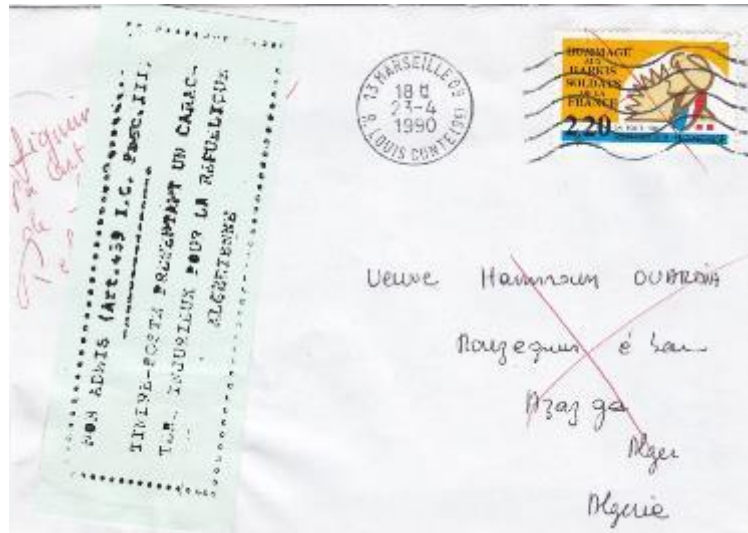 NON ADMIS (Art.459 I.G. FASC.III,
TIMBRE-POSTE PRESENTANT UN CARAC-
TERE INJURIEUX POUR LA REPUBLIQUE
ALGERIENNE
13 MARSEILLE 09
18 H
23-4
1990
R. LOUIS CONTE
HOMMAGE
AUX
HARKIS
SOLDATS
DE LA
FRANCE
2,20
Veuve Hammoun OUARDIA
Azazga
Alger
Algerie